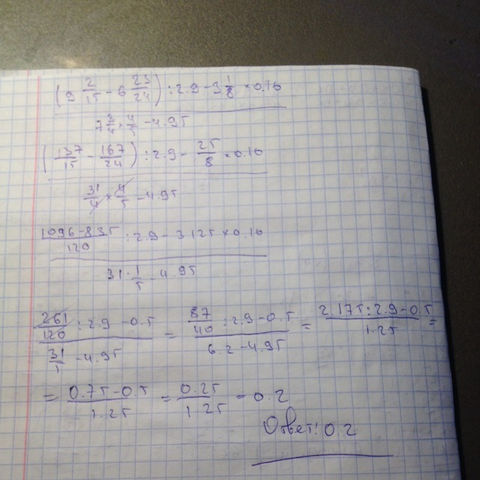 (9 2/15 - 6 23/24) : 2.9 - 3 1/8 × 0.16
7 3/4 × 4/5 - 4.95
(137/15 - 167/24) : 2.9 - 25/8 × 0.16
31/4 × 4/5 - 4.95
1096-835/120 : 2.9 - 3.125 × 0.16
31 · 1/5 - 4.95
261/120 : 2.9 - 0.5 = 87/40 : 2.9 - 0.5 = 2.175 : 2.9 - 0.5 =
31/5 - 4.95 6.2 - 4.95 1.25
= 0.75-0.5/1.25 = 0.25/1.25 = 0.2
Ответ: 0.2